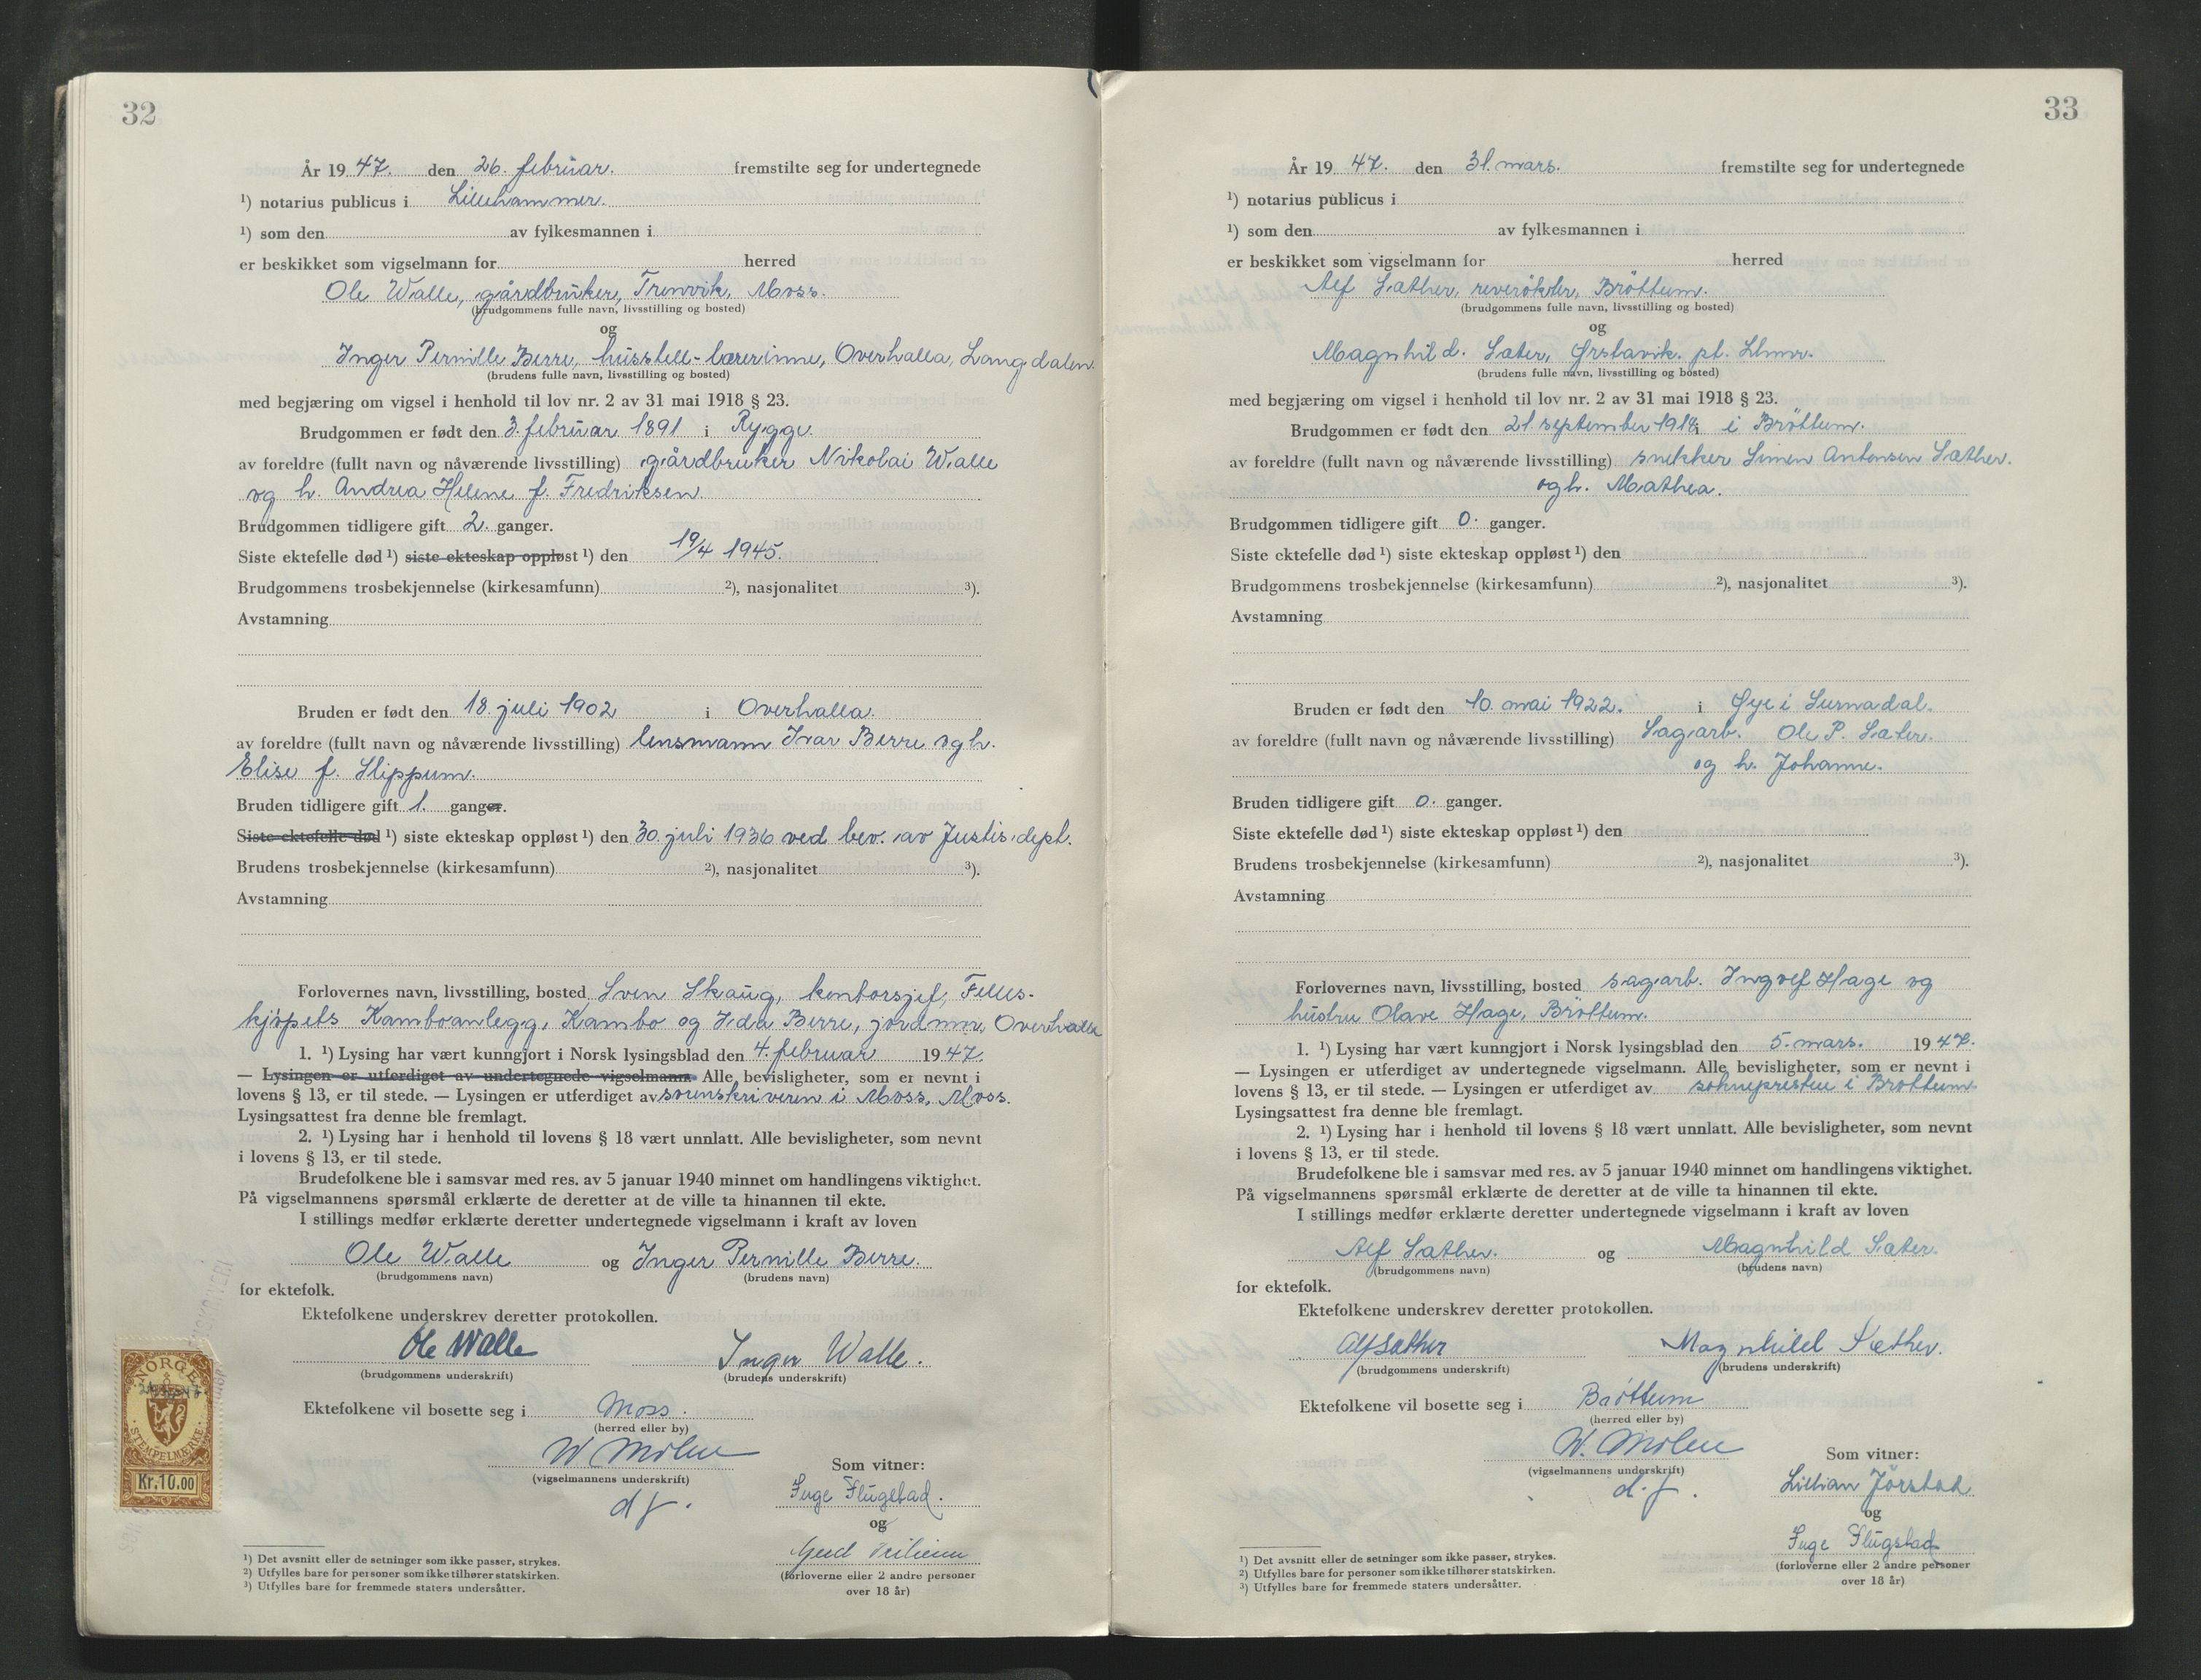 32
År 19 47. den 26. februar. fremstilte seg for undertegnede
¹) notarius publicus i Lillehammer.
¹) som den av fylkesmannen i
er beskikket som vigselmann for herred
Ole Walle, gårdbruker, Trenvik, Moss.
(brudgommens fulle navn, livsstilling og bosted)
og
Inger Pernille Berre, husstell-lærerinne, Overhalla, Langdalen.
(brudens fulle navn, livsstilling og bosted)
med begjæring om vigsel i henhold til lov nr. 2 av 31 mai 1918 § 23.
Brudgommen er født den 3. februar 1891 i Rygge.
av foreldre (fullt navn og nåværende livsstilling) gårdbruker Nikolai Walle
og h. Andrea Helene f. Fredriksen.
Brudgommen tidligere gift 2. ganger.
Siste ektefelle død ¹) siste ekteskap oppløst ¹) den 19/4 1945.
Brudgommens trosbekjennelse (kirkesamfunn) ²), nasjonalitet ³).
Avstamning
Bruden er født den 18. juli 1902 i Overhalla.
av foreldre (fullt navn og nåværende livsstilling) lensmann Ivar Berre og h.
Elise f. Slippum.
Bruden tidligere gift 1. ganger.
Siste ektefelle død ¹) siste ekteskap oppløst ¹) den 30. juli 1936 ved bev. av Justis.dept.
Brudens trosbekjennelse (kirkesamfunn) ²), nasjonalitet ³).
Avstamning
Forlovernes navn, livsstilling, bosted Sven Skaug, kontorsjef, Felles-
kjøpets Kamboanlegg, Kambo og Ida Berre, jordmor, Overhalla
1. ¹) Lysing har vært kunngjort i Norsk lysingsblad den 4. februar 19 47.
— Lysingen er utferdiget av undertegnede vigselmann. Alle bevisligheter, som er nevnt i
lovens § 13, er til stede. — Lysingen er utferdiget av sorenskriveren i Moss, Moss.
Lysingsattest fra denne ble fremlagt.
2. ¹) Lysing har i henhold til lovens § 18 vært unnlatt. Alle bevisligheter, som nevnt
i lovens § 13, er til stede.
Brudefolkene ble i samsvar med res. av 5 januar 1940 minnet om handlingens viktighet.
På vigselmannens spørsmål erklærte de deretter at de ville ta hinannen til ekte.
I stillings medfør erklærte deretter undertegnede vigselmann i kraft av loven
Ole Walle og Inger Pernille Berre.
(brudgommens navn) (brudens navn)
for ektefolk.
Ektefolkene underskrev deretter protokollen.
Ole Walle Inger Walle.
(brudgommens underskrift) (brudens underskrift)
Ektefolkene vil bosette seg i Moss.
(herred eller by)
W Molen
(vigselmannens underskrift)
d f.
Som vitner:
Inge Flugstad.
og
(forloverne eller 2 andre personer
over 18 år)
NORGE
STEMPELMERKE
Kr. 10.00
¹) Det avsnitt eller de setninger som ikke passer, strykes.
²) Utfylles bare for personer som ikke tilhører statskirken.
³) Utfylles bare for fremmede staters undersåtter.
33
År 19 47. den 31. mars. fremstilte seg for undertegnede
¹) notarius publicus i
¹) som den av fylkesmannen i
er beskikket som vigselmann for herred
Alf Sæther, reverøkter, Brøttum.
(brudgommens fulle navn, livsstilling og bosted)
og
Magnhild. Sæter, Ørstavik. pt. Lhmr.
(brudens fulle navn, livsstilling og bosted)
med begjæring om vigsel i henhold til lov nr. 2 av 31 mai 1918 § 23.
Brudgommen er født den 21. september 1918 i Brøttum.
av foreldre (fullt navn og nåværende livsstilling) snekker Simen Antonsen Sæther.
og h. Mathea.
Brudgommen tidligere gift 0. ganger.
Siste ektefelle død ¹) siste ekteskap oppløst ¹) den
Brudgommens trosbekjennelse (kirkesamfunn) ²), nasjonalitet ³).
Avstamning
Bruden er født den 10. mai 1922. i Øye i Surnadal.
av foreldre (fullt navn og nåværende livsstilling) Sagarb. Ole P. Sæter.
og h. Johanne.
Bruden tidligere gift 0. ganger.
Siste ektefelle død ¹) siste ekteskap oppløst ¹) den
Brudens trosbekjennelse (kirkesamfunn) ²), nasjonalitet ³).
Avstamning
Forlovernes navn, livsstilling, bosted sagarb. Ingolf Hage og
hustru Olave Hage, Brøttum.
1. ¹) Lysing har vært kunngjort i Norsk lysingsblad den 5. mars. 19 47.
— Lysingen er utferdiget av undertegnede vigselmann. Alle bevisligheter, som er nevnt i
lovens § 13, er til stede. — Lysingen er utferdiget av sokneprestn i Brøttum.
Lysingsattest fra denne ble fremlagt.
2. ¹) Lysing har i henhold til lovens § 18 vært unnlatt. Alle bevisligheter, som nevnt
i lovens § 13, er til stede.
Brudefolkene ble i samsvar med res. av 5 januar 1940 minnet om handlingens viktighet.
På vigselmannens spørsmål erklærte de deretter at de ville ta hinannen til ekte.
I stillings medfør erklærte deretter undertegnede vigselmann i kraft av loven
Alf Sæther. og Magnhild Sæter.
(brudgommens navn) (brudens navn)
for ektefolk.
Ektefolkene underskrev deretter protokollen.
Alf Sæther Magnhild Sæther.
(brudgommens underskrift) (brudens underskrift)
Ektefolkene vil bosette seg i Brøttum
(herred eller by)
W. Molen
(vigselmannens underskrift)
d.f.
Som vitner:
Lillian Jørstad
og
Inge Flugstad
(forloverne eller 2 andre personer
over 18 år)
¹) Det avsnitt eller de setninger som ikke passer, strykes.
²) Utfylles bare for personer som ikke tilhører statskirken.
³) Utfylles bare for fremmede staters undersåtter.